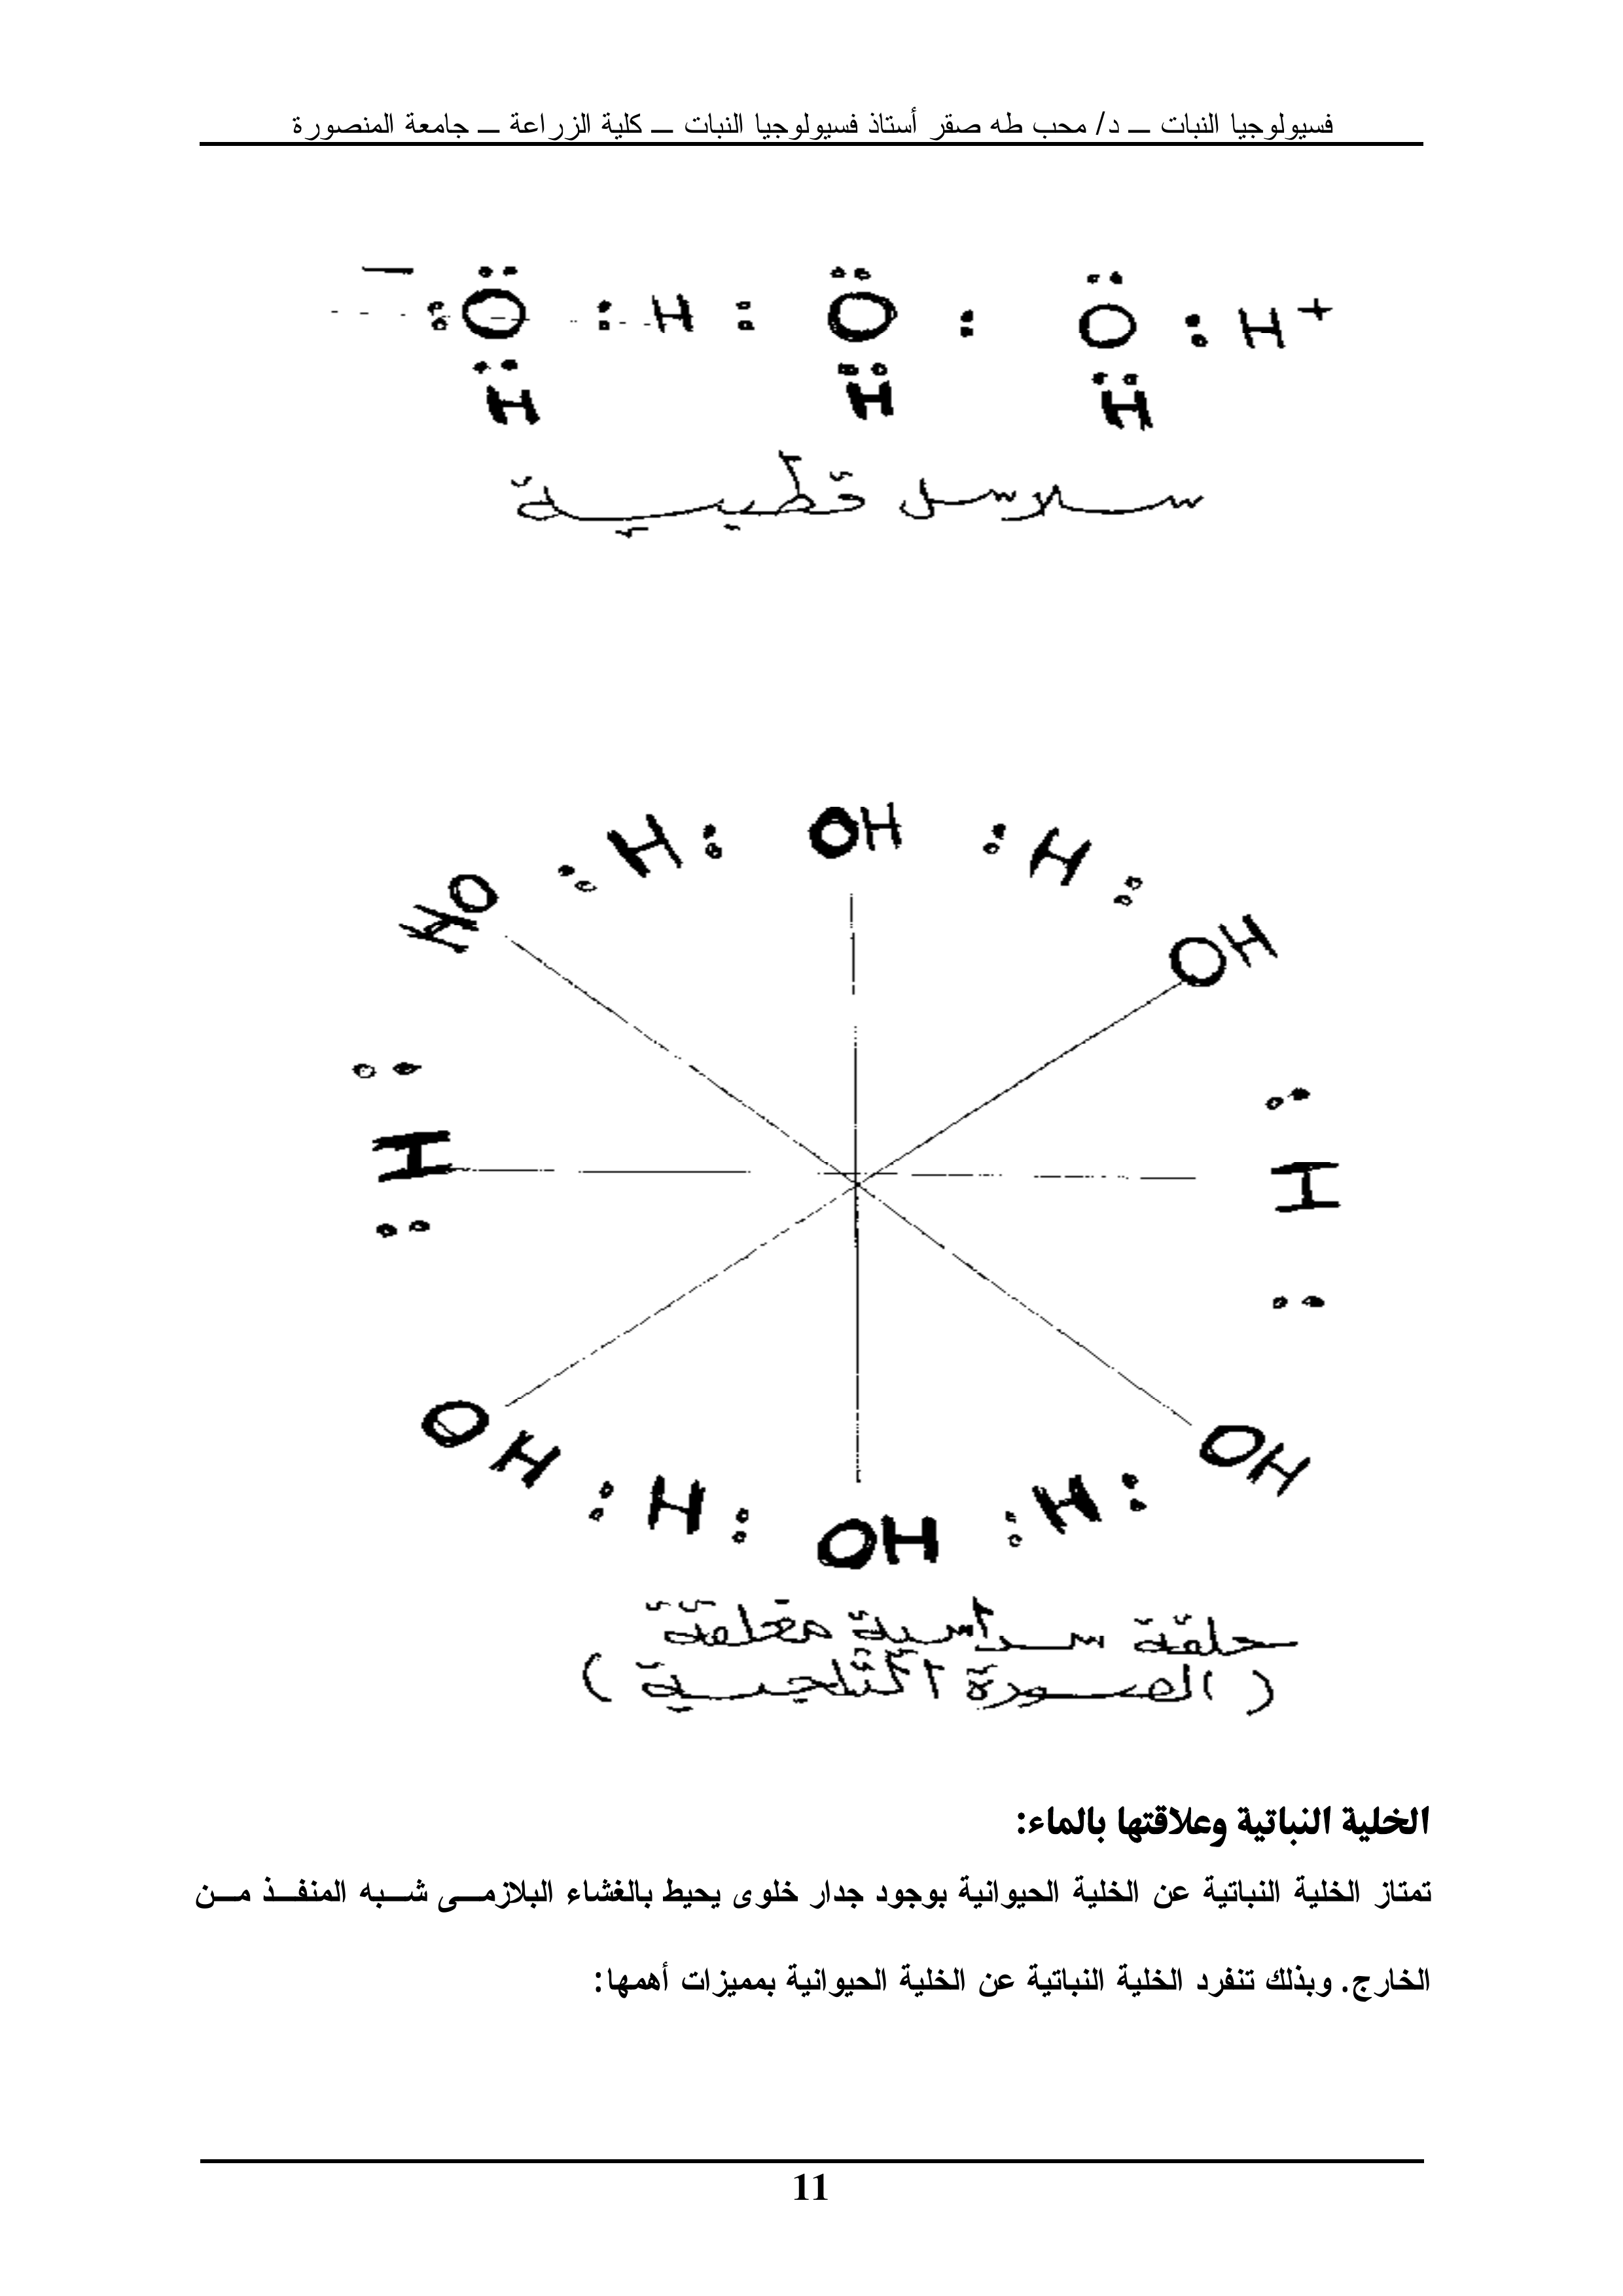 فسيولوجيا النبات ــ د/ محب طه صقر أستاذ فسيولوجيا النبات ــ كلية الزراعة ــ جامعة المنصورة
– :O : H : O : O : H +
H H H
سلاسل قطبية
HO : H : OH : H : OH
H H
OH : H : OH : H : OH
حلقة سداسية مغلقة
( الصورة الثلجية )
الخلية النباتية وعلاقتها بالماء:
تمتاز الخلية النباتية عن الخلية الحيوانية بوجود جدار خلوى يحيط بالغشاء البلازمى شبه المنفذ من
الخارج. وبذلك تنفرد الخلية النباتية عن الخلية الحيوانية بمميزات أهمها:
11